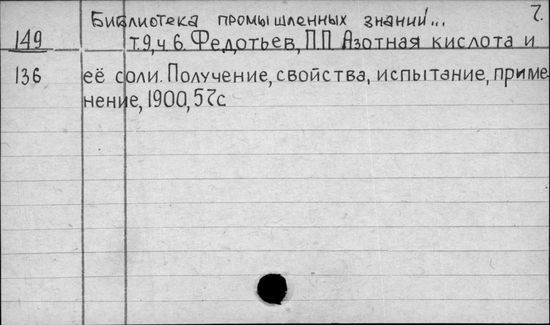 Библиотека промышленных знаний... 7.
149 т.9, ч 6. Федотьев, П.П. Азотная кислота и
136 её соли. Получение, свойства, испытание, приме
нение, 1900, 57с